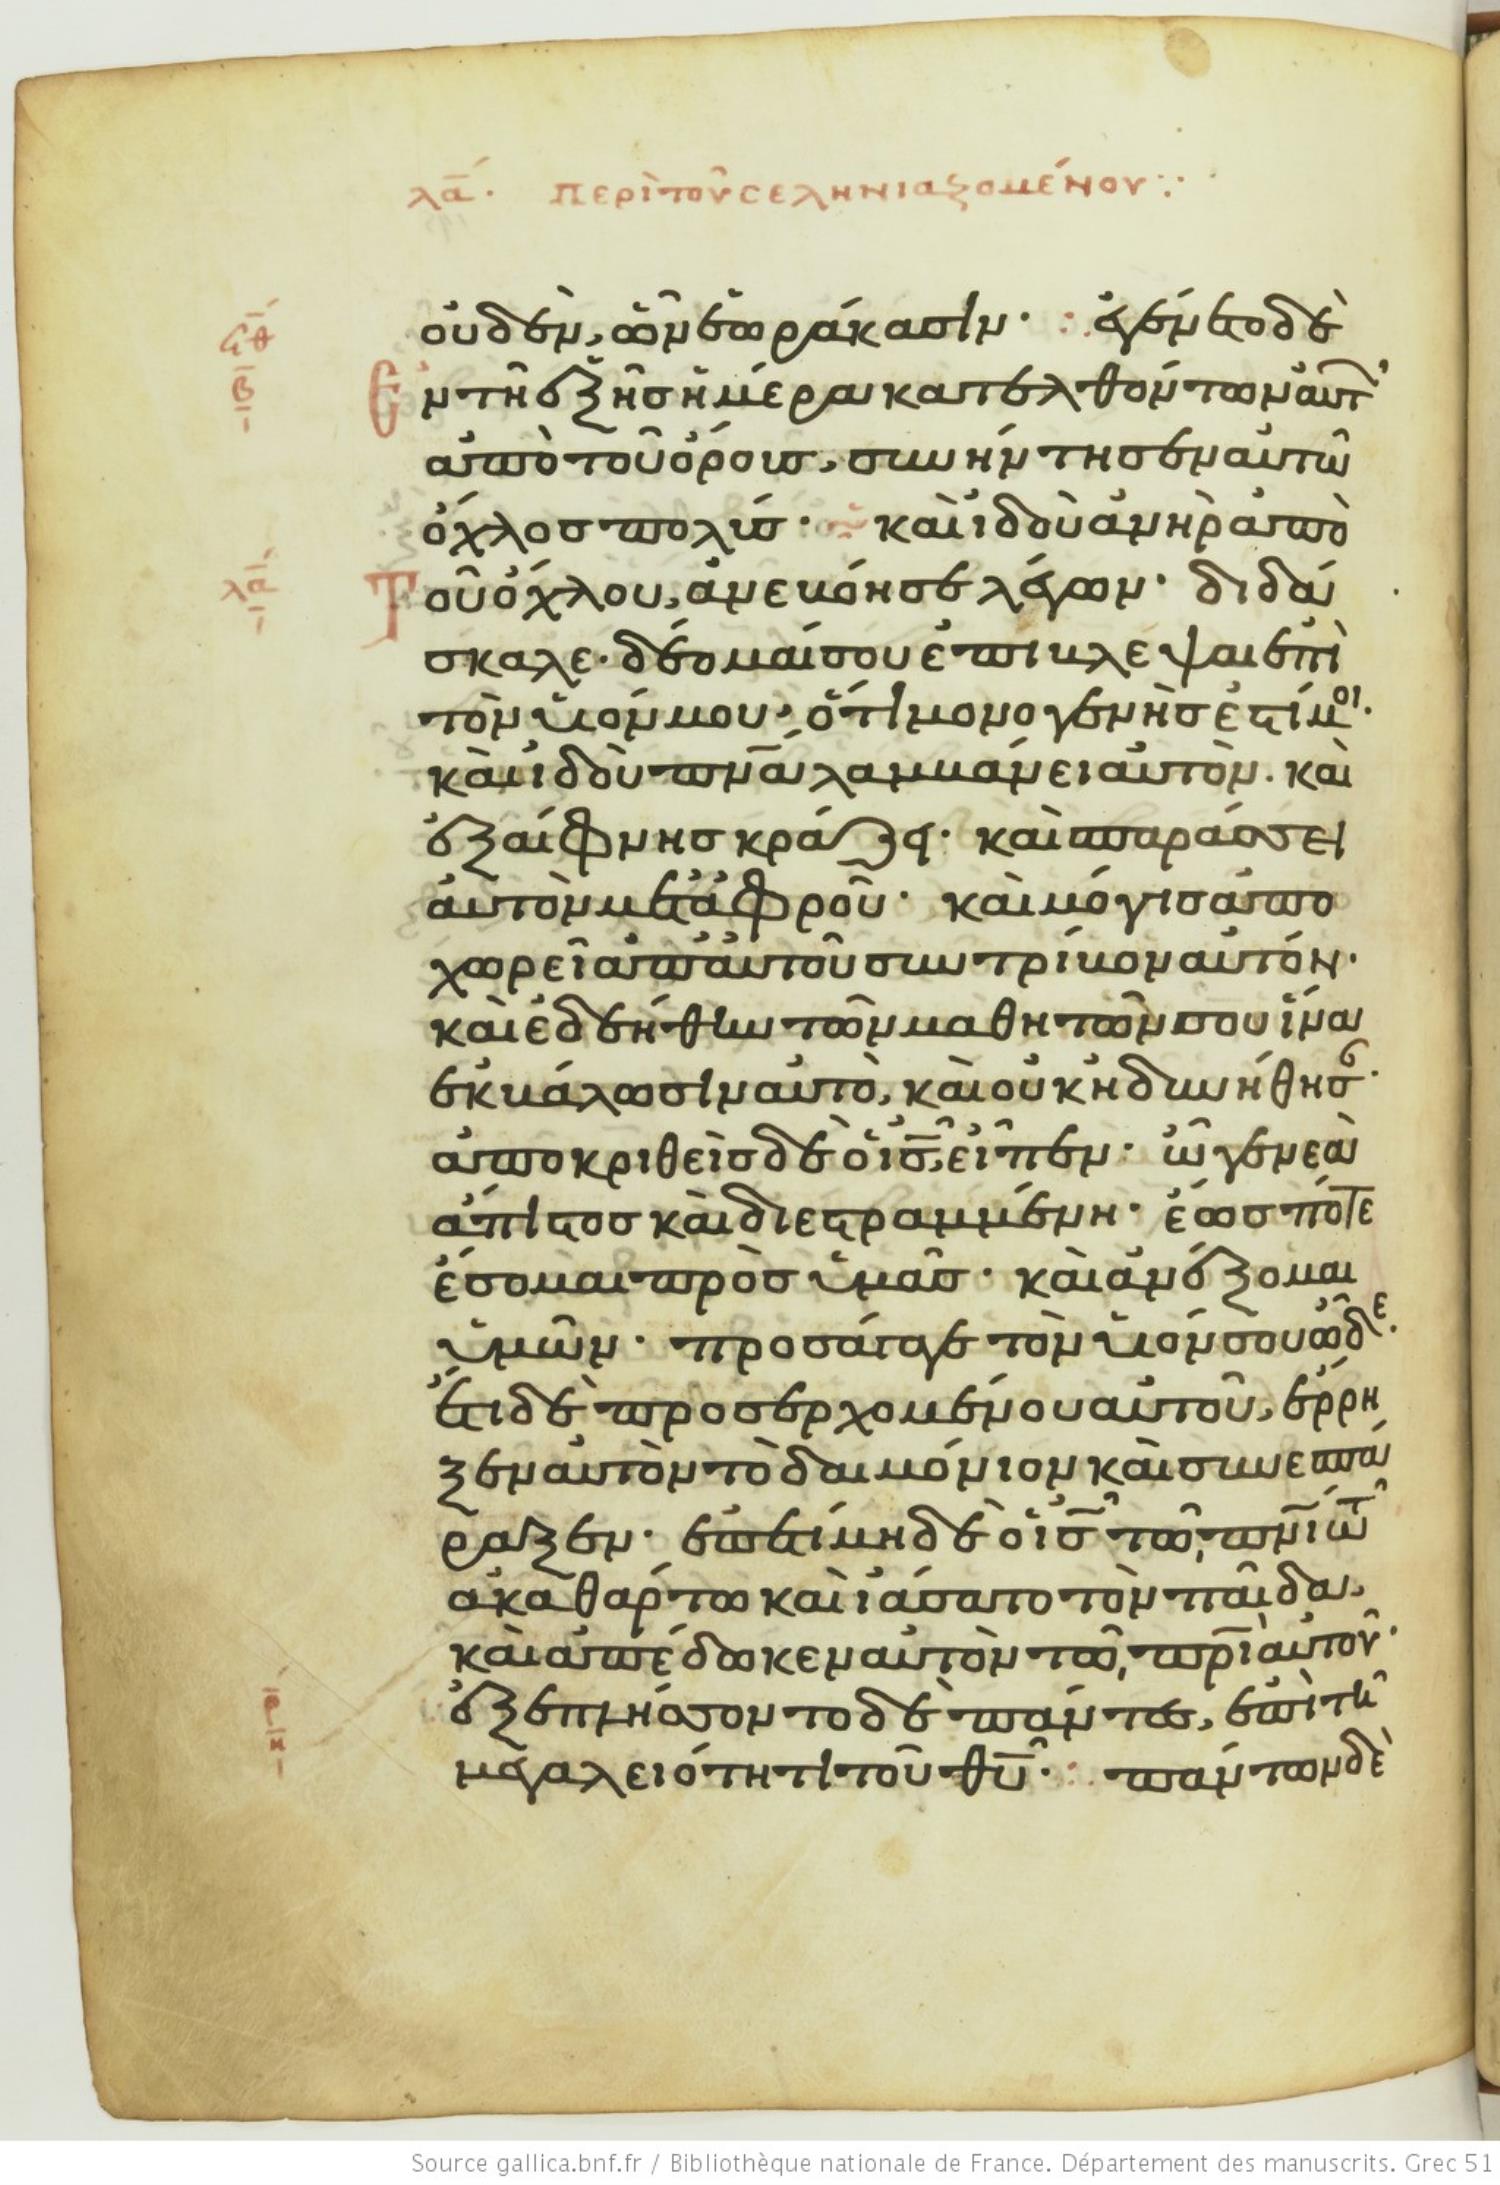 λᾱ. περὶ τοῦ σεληνιαζομένου:·
οὐδὲν, ὧν ἑωράκασιν· ἐγένετο δὲ
ϟθ
β
ἐν τῆ ἑξῆς ἡμέρα κατελθόντων αὐτ
ἀπὸ τοῦ ὄρους, συνήντησεν αὐτῶ
ὄχλος πολύς· καὶ ἰδοὺ ἀνὴρ ἀπὸ
λᾱ
τοῦ ὄχλου, ἀνεβόησε λέγων· διδά
σκαλε. δέομαί σου ἐπιβλεψαι ἐπὶ
τὸν ϋἱόν μου, ὅτι μονογενὴς ἐστί μοι.
καὶ ἰδοὺ πνᾱ λαμβάνει αὐτὸν. καὶ
ἐξαίφνης κράζει· καὶ σπαράσσει
αὐτὸν μετὰ ἀφροῦ· καὶ μόγις ἀπο
χωρεῖ ἀπ' αὐτοῦ συντρίβον αὐτόν·
καὶ ἐδεήθην τῶν μαθητῶν σου ἵνα
ἐκβάλωσιν αὐτὸ, καὶ οὐκ ἠδυνήθησ·
ἀποκριθεὶς δὲ ὁ ις̄, εἶπεν· ὦ γενεὰ
ἄπιστος καὶ διεστραμμένη· ἕως πότε
ἔσομαι πρὸς ὑμᾶς· καὶ ἀνέξομαι
ὑμῶν· προσάγαγε τὸν ϋἱόν σου ὧδε.
ἔτι δὲ προσερχομένου αὐτοῦ, ἔρρη
ξεν αὐτὸν τὸ δαιμόνιον καὶ συνεσπά
ραξεν· ἐπετίμησε δὲ ὁ ις̄ τῶ, πνῑ τῶ
ἀκαθάρτω καὶ ἰάσατο τὸν παῖδα,
καὶ ἀπέδωκεν αὐτὸν τῶ, πρῑ αὐτοῦ·
ἐξεπλήσσοντο δὲ πάντες, ἐπὶ τῆ
ρ
μεγαλειότητι τοῦ θῡ·: πάντων δὲ